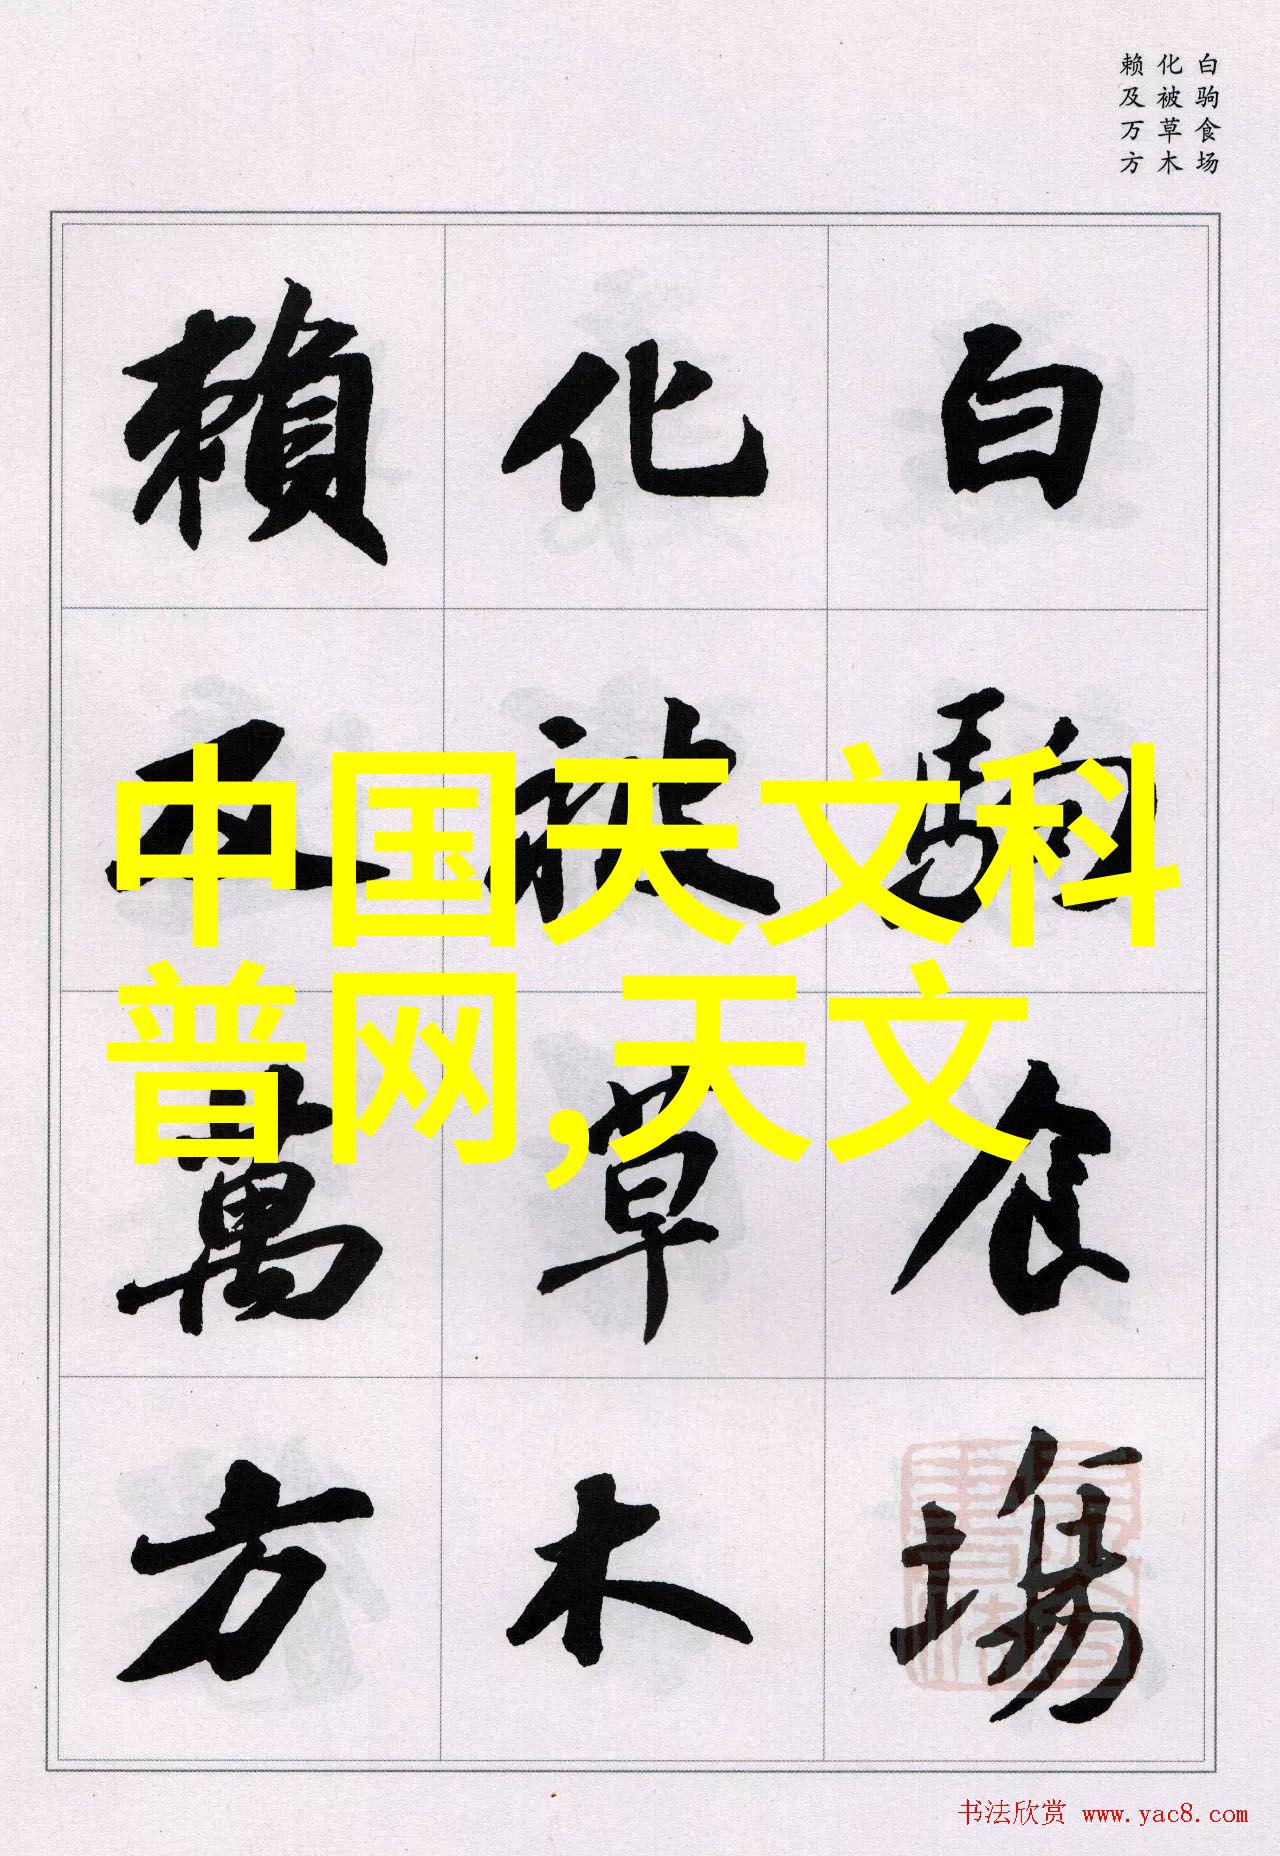 白驹食场
化被草木
赖及万方
白駒食場
化被草木
賴及萬方
中国天文科
普网,天文
书法欣赏 www.yac8.com